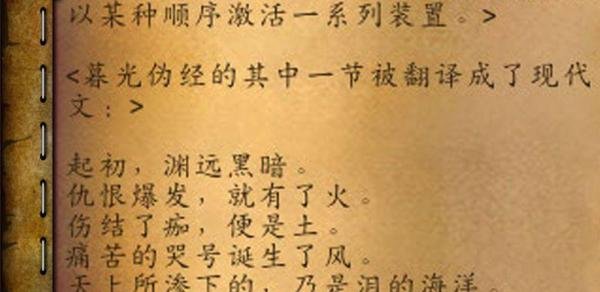 以某种顺序激活一系列装置。>
<暮光伪经的其中一节被翻译成了现代
文：>
起初，渊远黑暗。
仇恨爆发，就有了火。
伤结了痂，便是土。
痛苦的哭号诞生了风。
天上所渗下的，乃是泪的海洋。